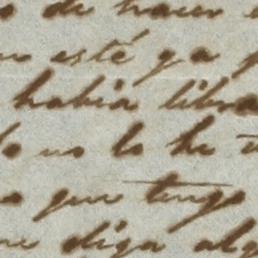 de hacer
esté ya
habia libra
no lo he
que tengo
diga alg